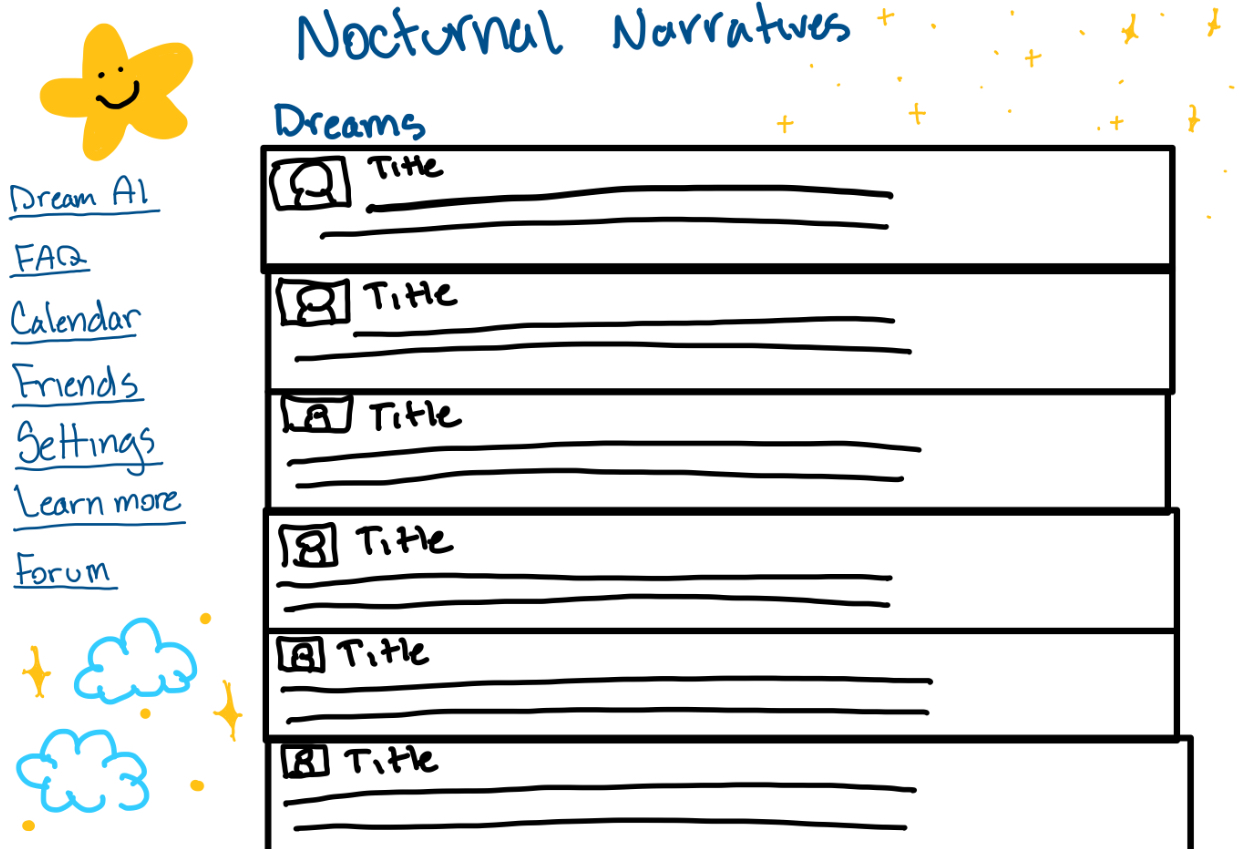 Nocturnal Narratives
Dream AI
FAQ
Calendar
Friends
Settings
Learn more
Forum
Dreams
Title
Title
Title
Title
Title
Title